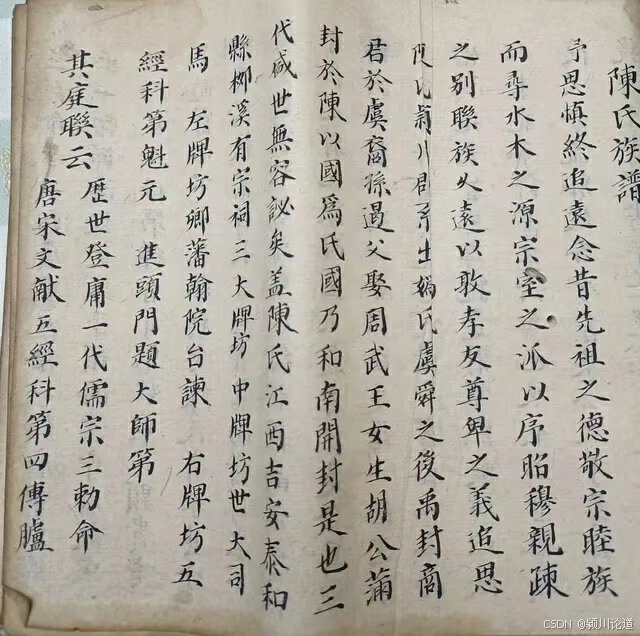 陳氏族譜
予思慎終追遠念昔先祖之德敬宗睦族
而尋水木之源宗室之派以序昭穆親疎
之別聯族久遠以敦孝友尊卑之義追思
陳氏潁川郡系出媯氏虞舜之後禹封商
君於虞裔孫遏父娶周武王女生胡公蒲
封於陳以國為氏國乃和南開封是也三
代咸世無容訟矣盖陳氏江西吉安泰和
縣柳溪有宗祠三大牌坊 中牌坊世大司
馬 左牌坊卿藩翰院台諫 右牌坊五
經科第魁元 進頭門題大師第
其庭聯云 歷世登庸一代儒宗三勅命
唐宋文献五經科第四傳臚
CSDN @颍川论道